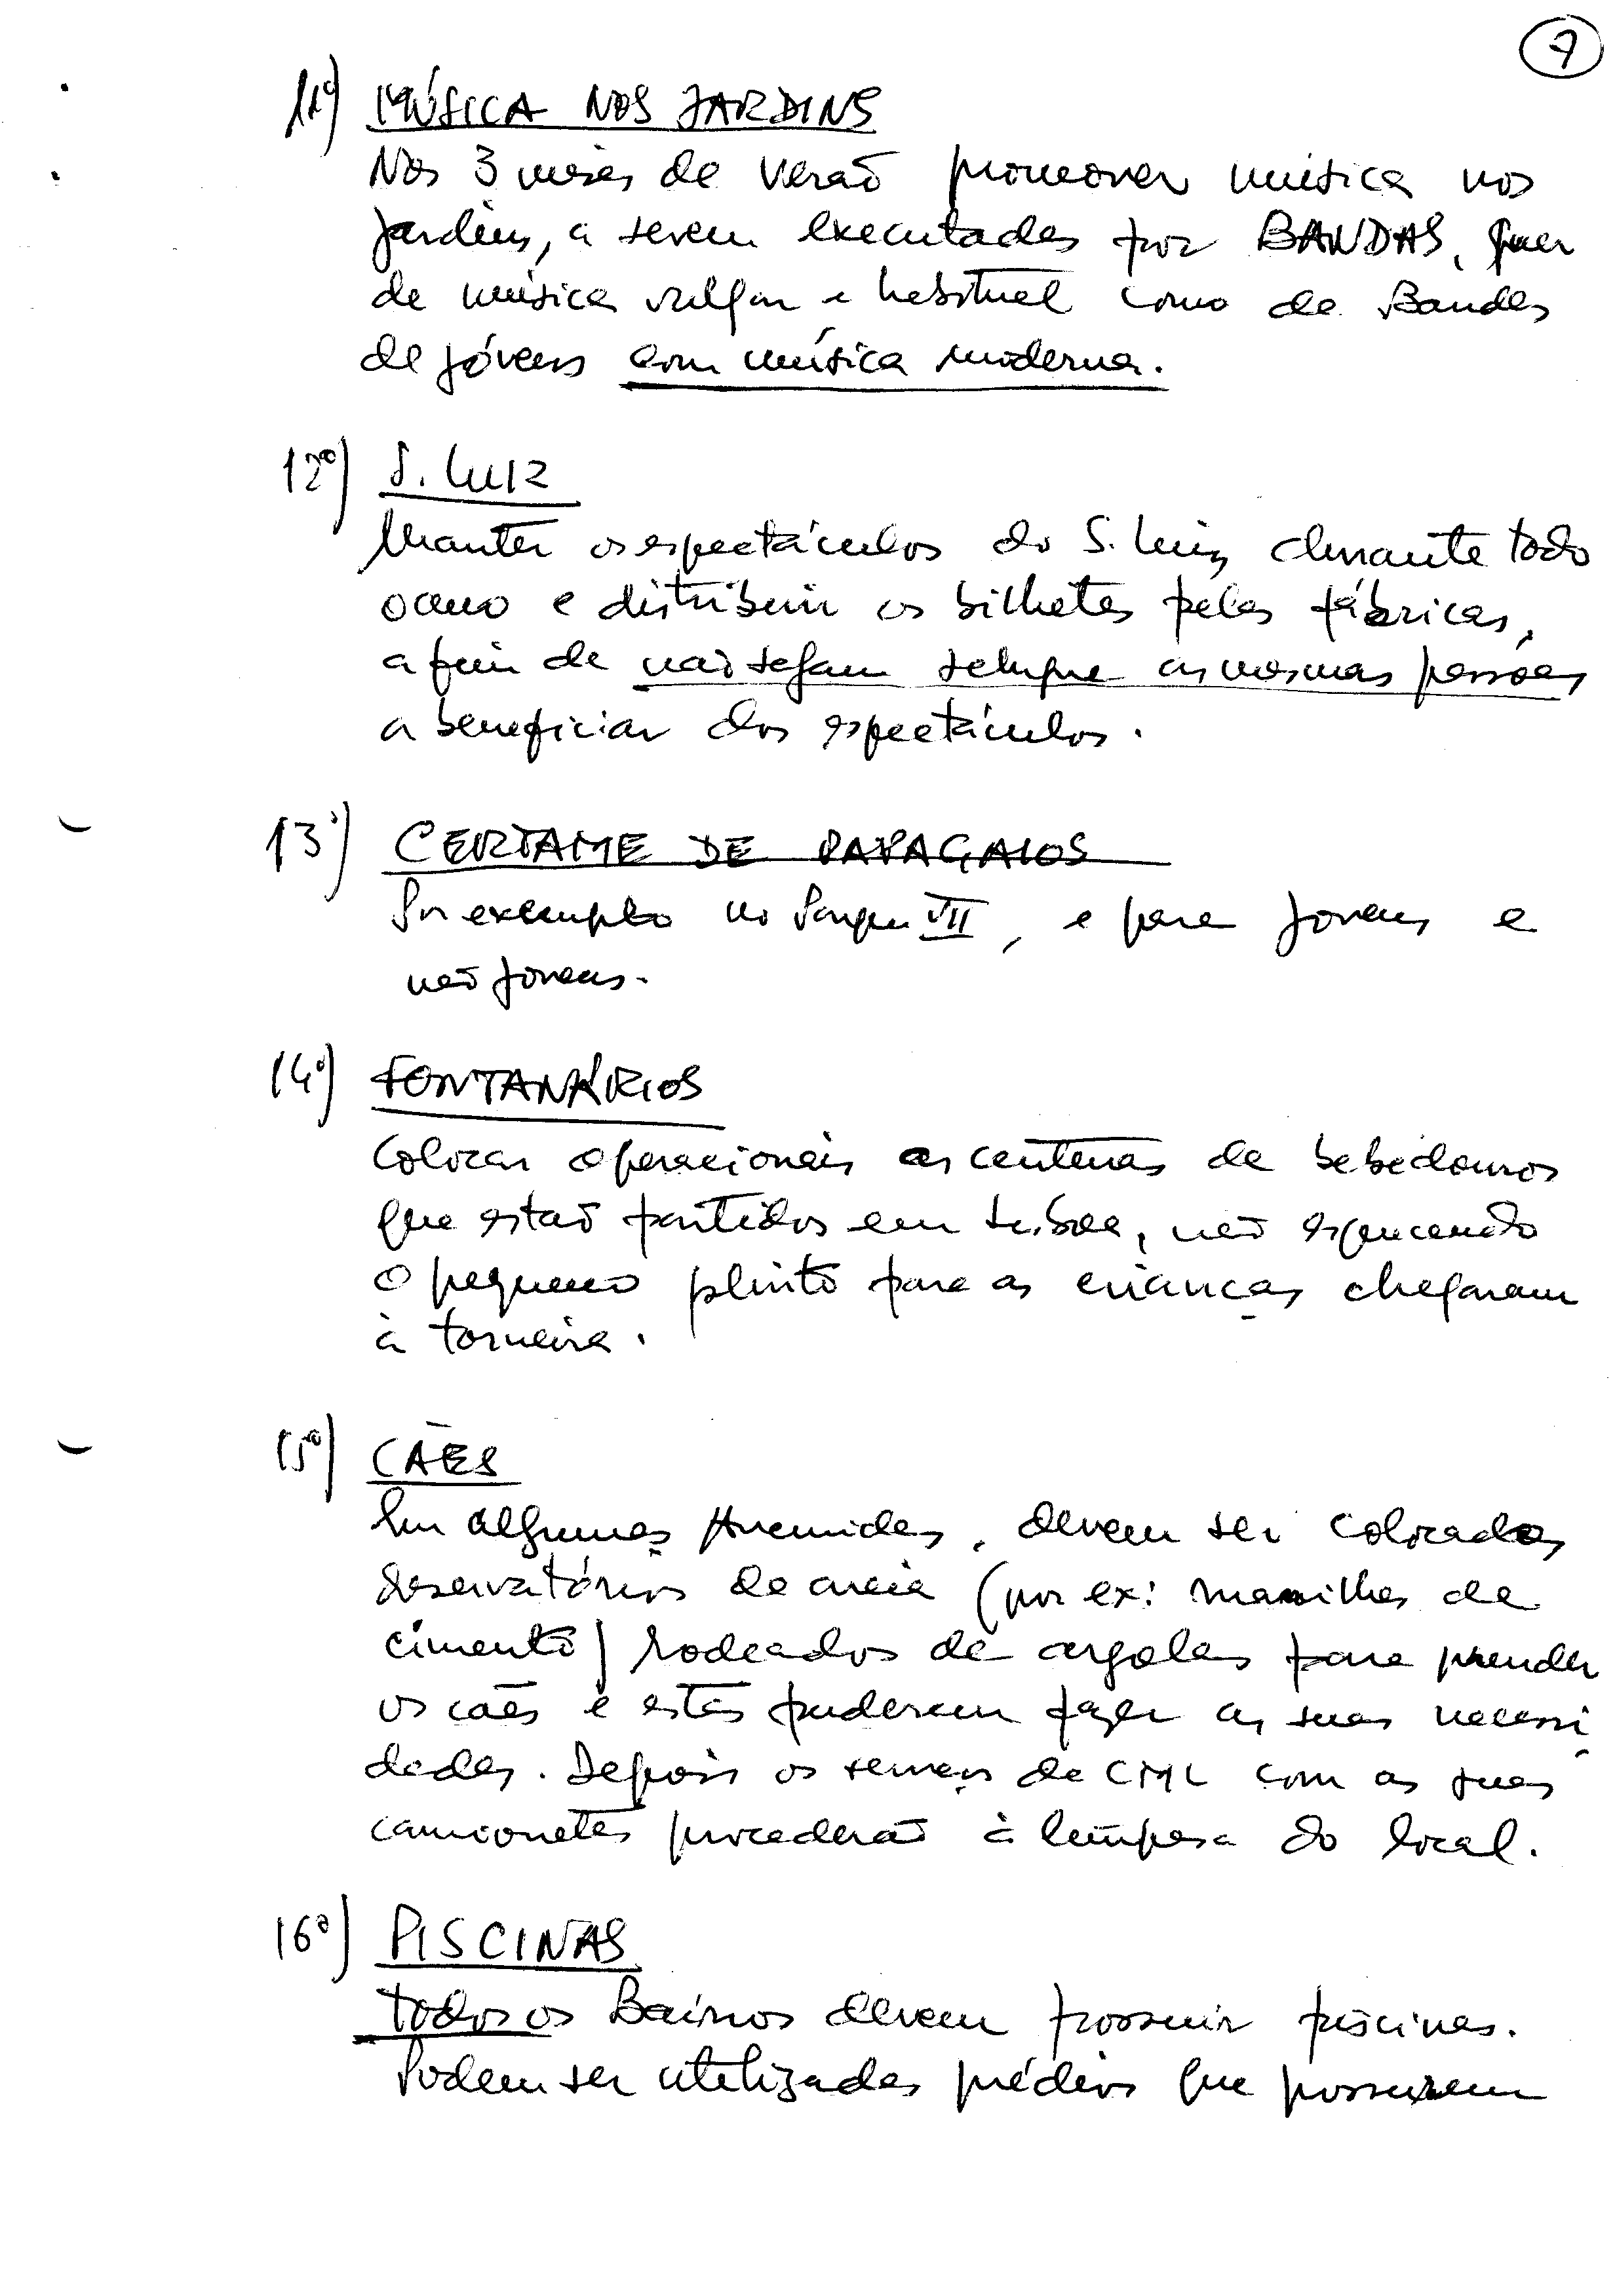 7
11º) MÚSICA NOS JARDINS
Nos 3 meses de verão promover música nos
jardins, a serem executadas por BANDAS, quer
de música vulgar e habitual como de Bandas
de jóvens com música moderna.
12º) S. LUIZ
Manter os espectáculos do S. Luiz durante todo
o ano e distribuir os bilhetes pelas fábricas,
a fim de não sejam sempre as mesmas pessoas
a beneficiar dos espectáculos.
13º) CERTAME DE PAPAGAIOS
Por exemplo no Parque VII, e para jovens e
não jovens.
14º) FONTANÁRIOS
Colocar operacionais as centenas de bebedouros
que estão partidos em Lisboa, não esquecendo
o pequeno plinto para as crianças chegarem
à torneira.
15º) CÃES
Em algumas Avenidas, devem ser colocados
reservatórios de areia (por ex: manilhas de
cimento) rodeados de argolas para prender
os cães e estes puderem fazer as suas necessi
dades. Depois os serviços da CML com as suas
camionetes procederão à limpesa do local.
16º) PISCINAS
Todos os Bairros devem possuir piscinas.
Podem ser utilizadas prédios que possuirem